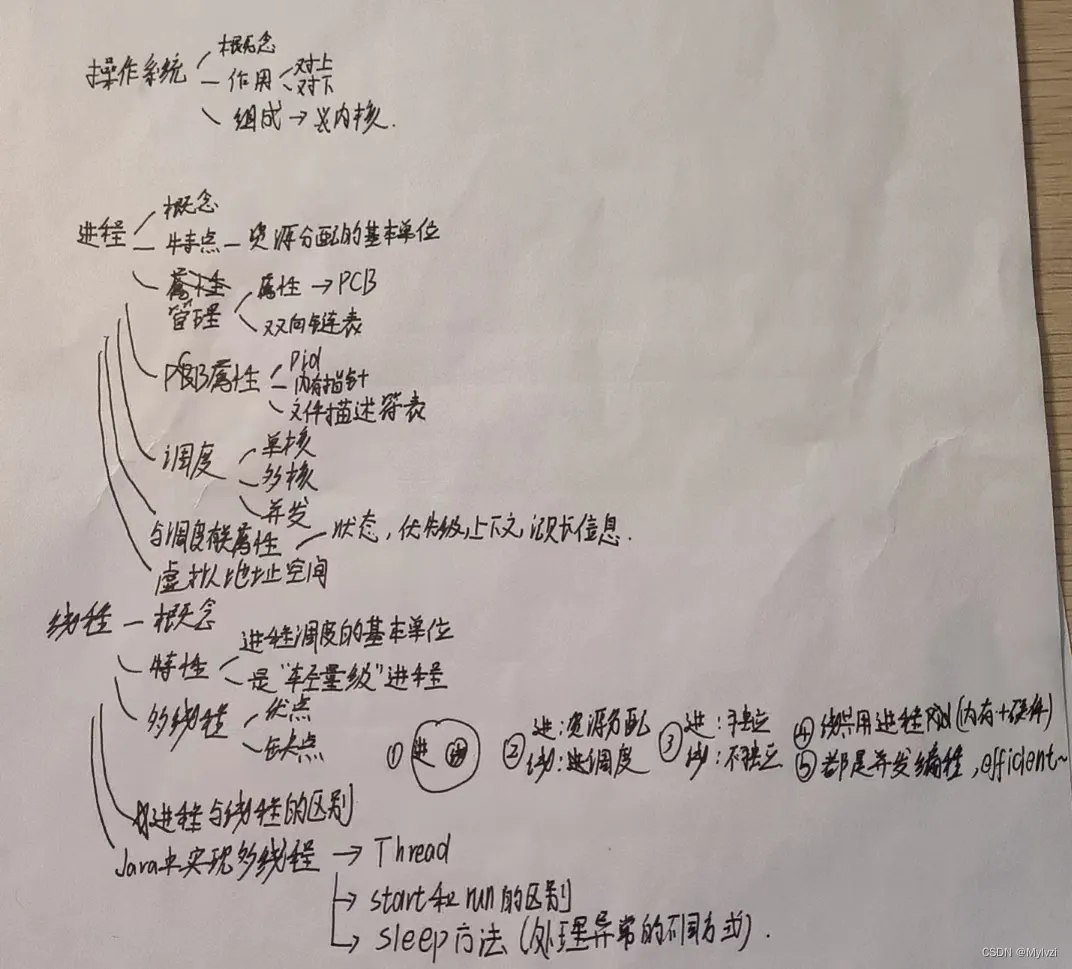 操作系统
概念
作用
对上
对下
组成 → 内核.
进程
概念
特点 - 资源分配的基本单位
属性
管理
属性 → PCB
双向链表
PCB属性
Pid
内存指针
文件描述符表
调度
单核
多核
并发
与调度有关属性
状态, 优先级, 上下文, 记账信息.
虚拟地址空间
线程 - 概念
特性
进程调度的基本单位
是"轻量级"进程
多线程
优点
缺点
① 进 线
② 进:资源分配
线:进调度
③ 进:独立
线:不独立
④ 线共用进程Pid(内存+硬件)
⑤ 都是并发编程,efficient~
进程与线程的区别
Java中实现多线程 → Thread
→ start和run的区别
→ sleep方法(处理异常的不同方式).
CSDN @Mylvzi